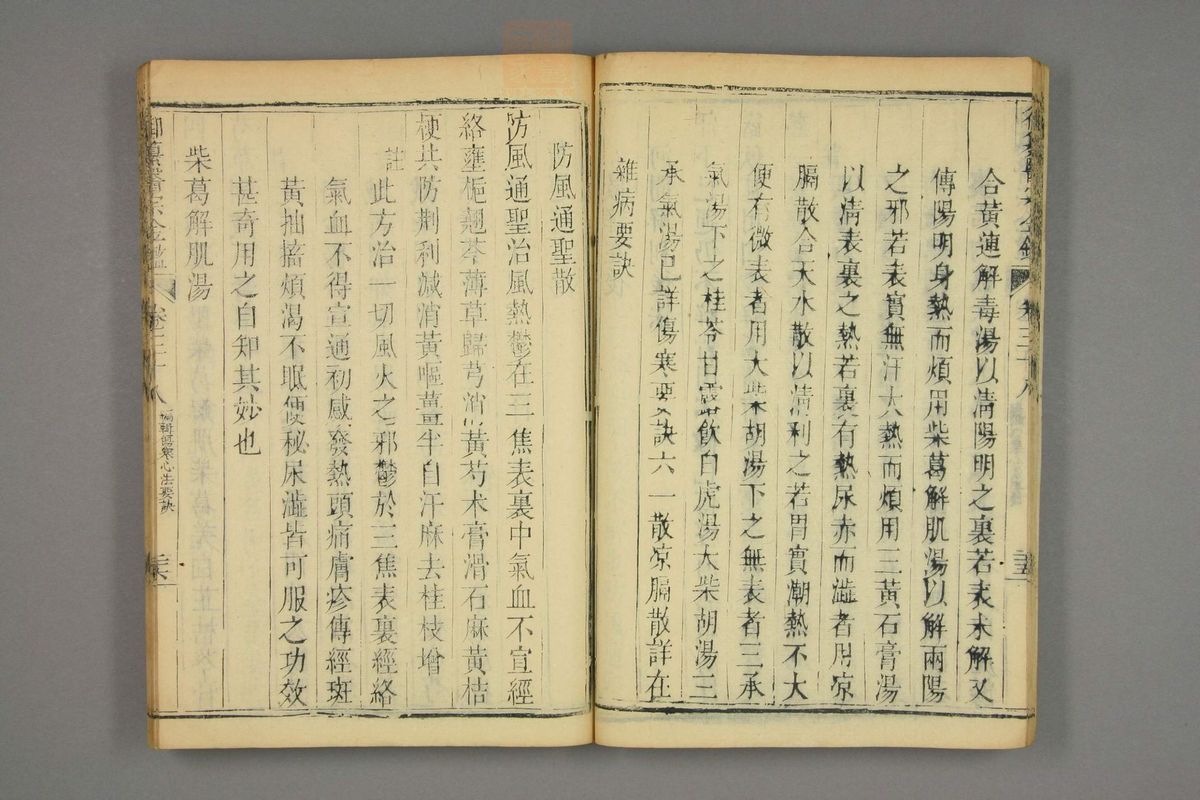 合黃連解毒湯以淸陽明之裏若表未解又
傳陽明身熱而煩用柴葛解肌湯以解兩陽
之邪若表實無汗大熱而煩用三黃石膏湯
以淸表裏之熱若裏有熱尿赤而澁者用凉
膈散合天水散以淸利之若胃實潮熱不大
便有微表者用大柴胡湯下之無表者三承
氣湯下之桂苓甘露飮白虎湯大柴胡湯三
承氣湯已詳傷寒要訣六一散凉膈散詳在
雜病要訣
防風通聖散
防風通聖治風熱鬱在三焦表裏中氣血不宣經
絡壅梔翹芩薄草歸芎硝黃芍朮膏滑石麻黃桔
梗共防荆利減消黃嘔薑半自汗麻去桂枝增
註
此方治一切風火之邪鬱於三焦表裏經絡
氣血不得宣通初感發熱頭痛膚疹傳經斑
黃抽搐煩渴不眠便秘尿澁皆可服之功效
甚奇用之自知其妙也
柴葛解肌湯
御纂醫宗金鑑
卷三十八
編輯傷寒心法要訣